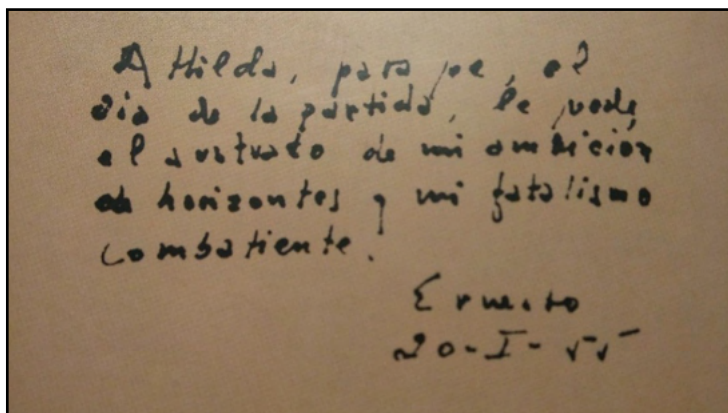 A Hilda, para qe, el
dia de la partida, le quede
el sustrato de mi ambición
de horizontes y mi fatalismo
combatiente.
Ernesto
20-I-55